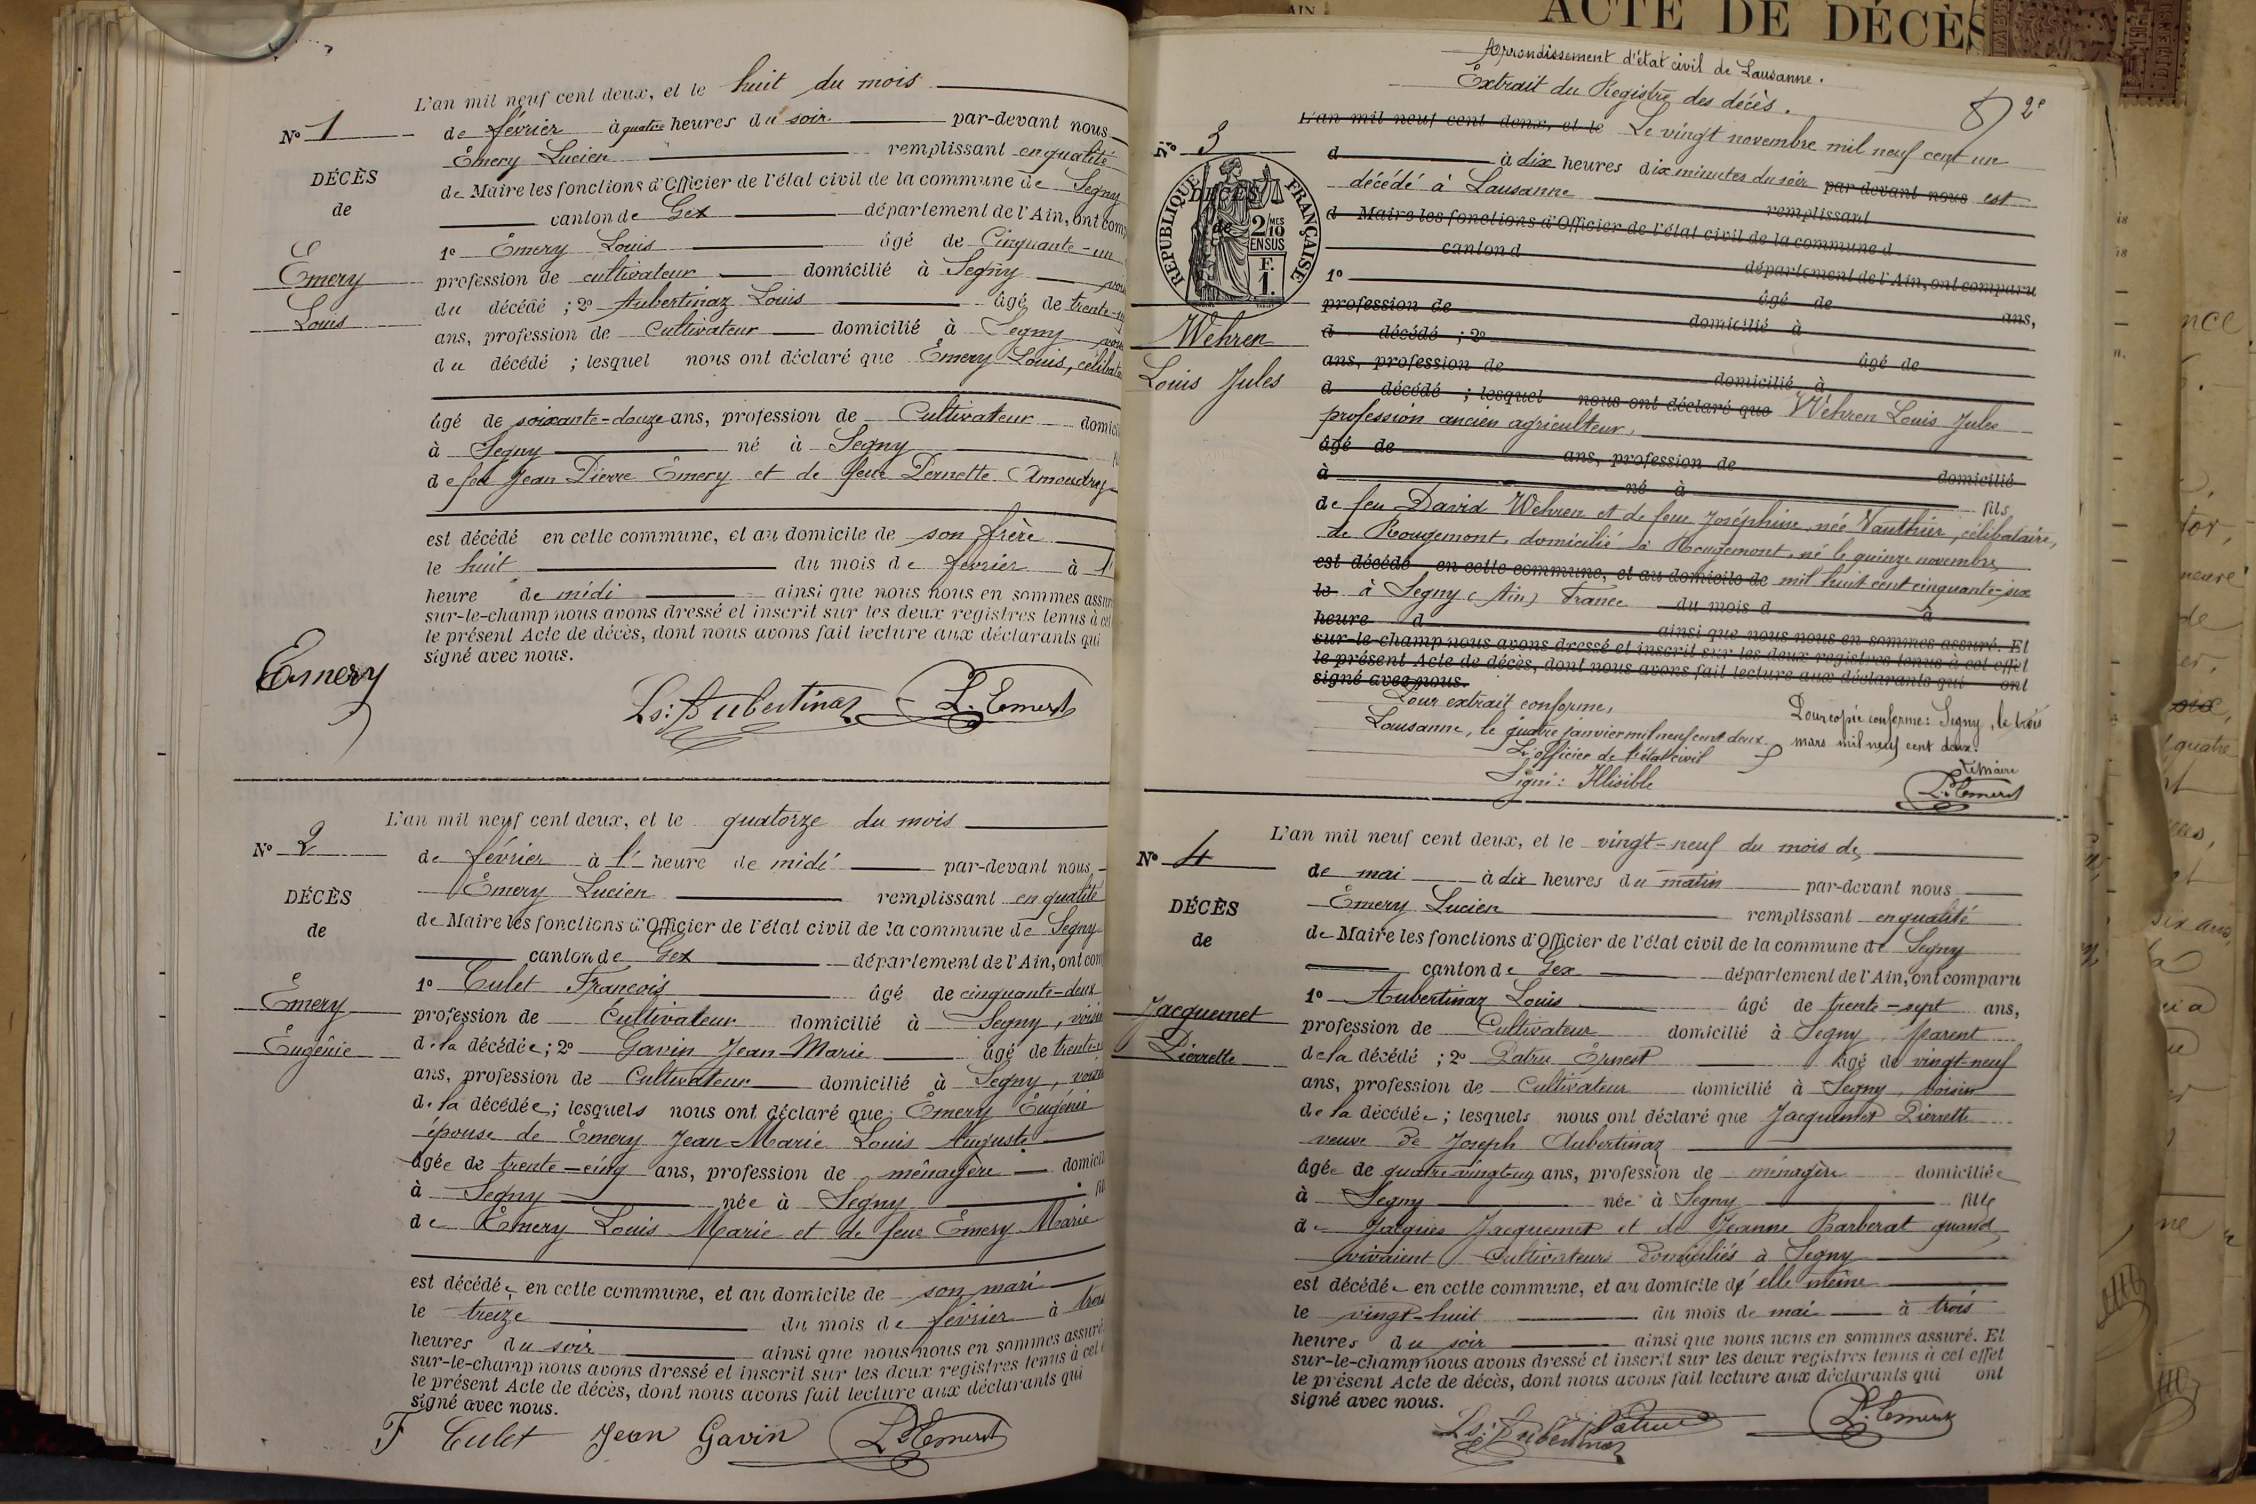 L'an mil neuf cent deux, et le huit du mois
N° 1
de février à quatre heures du soir par-devant nous
Emery Lucien remplissant en qualité
DÉCÈS
de Maire les fonctions d'Officier de l'état civil de la commune de Segny
de
canton de Gex département de l'Ain, ont com
1° Emery Louis âgé de Cinquante-un
Emery
profession de cultivateur domicilié à Segny
du décédé ; 2° Aubertinaz Louis âgé de trente-
Louis
ans, profession de Cultivateur domicilié à Segny
du décédé ; lesquel nous ont déclaré que Emery Louis, célibata
âgé de soixante-douze ans, profession de Cultivateur domici
à Segny né à Segny
de feu Jean Pierre Emery et de feue Pernette
est décédé en cette commune, et au domicile de son frère
le huit du mois de février à 1
heure de midi ainsi que nous nous en sommes assur
sur-le-champ nous avons dressé et inscrit sur les deux registres tenus à cet
le présent Acte de décès, dont nous avons fait lecture aux déclarants qui
signé avec nous.
Emery
Ls: Aubertinaz L. Emery
L'an mil neuf cent deux, et le quatorze du mois
N° 2
de février à 1 heure de midi par-devant nous
Emery Lucien remplissant en qualité
DÉCÈS
de Maire les fonctions d'Officier de l'état civil de la commune de Segny
de
canton de Gex département de l'Ain, ont com
1° Culet François âgé de cinquante-deux
Emery
profession de Cultivateur domicilié à Segny, voisin
Eugénie
de la décédée; 2° Gavin Jean-Marie âgé de trente-
ans, profession de Cultivateur domicilié à Segny, voisin
de la décédée; lesquels nous ont déclaré que Emery Eugénie
épouse de Emery Jean-Marie Louis Auguste
âgée de trente-cinq ans, profession de ménagère domicil
à Segny née à Segny fil
de Emery Louis Marie et de feue Emery Marie
est décédée en cette commune, et au domicile de son mari
le treize du mois de février à trois
heures du soir ainsi que nous nous en sommes assuré
sur-le-champ nous avons dressé et inscrit sur les deux registres tenus à cet
le présent Acte de décès, dont nous avons fait lecture aux déclarants qui
signé avec nous.
F Culet Jean Gavin L. Emery
ACTE DE DÉCÈS
Arrondissement d'état civil de Lausanne.
Extrait du Registre des décès.
2e
L'an mil neuf cent deux, et le Le vingt novembre mil neuf cent un
N° 3
d à dix heures dix minutes du soir par-devant nous est
décédé à Lausanne remplissant
RÉPUBLIQUE FRANÇAISE
2/10 MES EN SUS
F. 1.
DÉCÈS
de
d Maire les fonctions d'Officier de l'état civil de la commune d
canton d département de l'Ain, ont comparu
1° âgé de ans,
profession de domicilié à
d décédé ; 2° âgé de
Wehren
ans, profession de domicilié à
Louis Jules
d décédé ; lesquel nous ont déclaré que Wehren Louis Jules
profession ancien agriculteur,
âgé de ans, profession de domicilié
à né à fils
de feu David Wehren et de feue Joséphine née Vauthier, célibataire,
de Rougemont, domicilié à Rougemont, né le quinze novembre
est décédé en cette commune, et au domicile de mil huit cent cinquante-six
le à Segny (Ain) France du mois d à
heure d ainsi que nous nous en sommes assuré. Et
sur-le-champ nous avons dressé et inscrit sur les deux registres tenus à cet effet
le présent Acte de décès, dont nous avons fait lecture aux déclarants qui ont
signé avec nous.
Pour extrait conforme,
Lausanne, le quatre janvier mil neuf cent deux.
L'officier de l'état civil
Signé : Illisible
Pour copie conforme : Segny, le trois
mars mil neuf cent deux.
Le Maire
L. Emery
L'an mil neuf cent deux, et le vingt-neuf du mois de
N° 4
de mai à dix heures du matin par-devant nous
Emery Lucien remplissant en qualité
DÉCÈS
de Maire les fonctions d'Officier de l'état civil de la commune de Segny
de
canton de Gex département de l'Ain, ont comparu
1° Aubertinaz Louis âgé de trente-sept ans,
Jacquemet
profession de Cultivateur domicilié à Segny parent
Pierrette
de la décédé ; 2° Patru Ernest âgé de vingt-neuf
ans, profession de Cultivateur domicilié à Segny, voisin
de la décédée ; lesquels nous ont déclaré que Jacquemet Pierrette
veuve de Joseph Aubertinaz
âgée de quatre-vingt un ans, profession de ménagère domiciliée
à Segny née à Segny fille
de Jacques Jacquemet et de Jeanne Barberat quand
vivaient Cultivateurs domiciliés à Segny
est décédée en cette commune, et au domicile d'elle même
le vingt-huit du mois de mai à trois
heures du soir ainsi que nous nous en sommes assuré. Et
sur-le-champ nous avons dressé et inscrit sur les deux registres tenus à cet effet
le présent Acte de décès, dont nous avons fait lecture aux déclarants qui ont
signé avec nous.
Ls: Aubertinaz Patru L. Emery